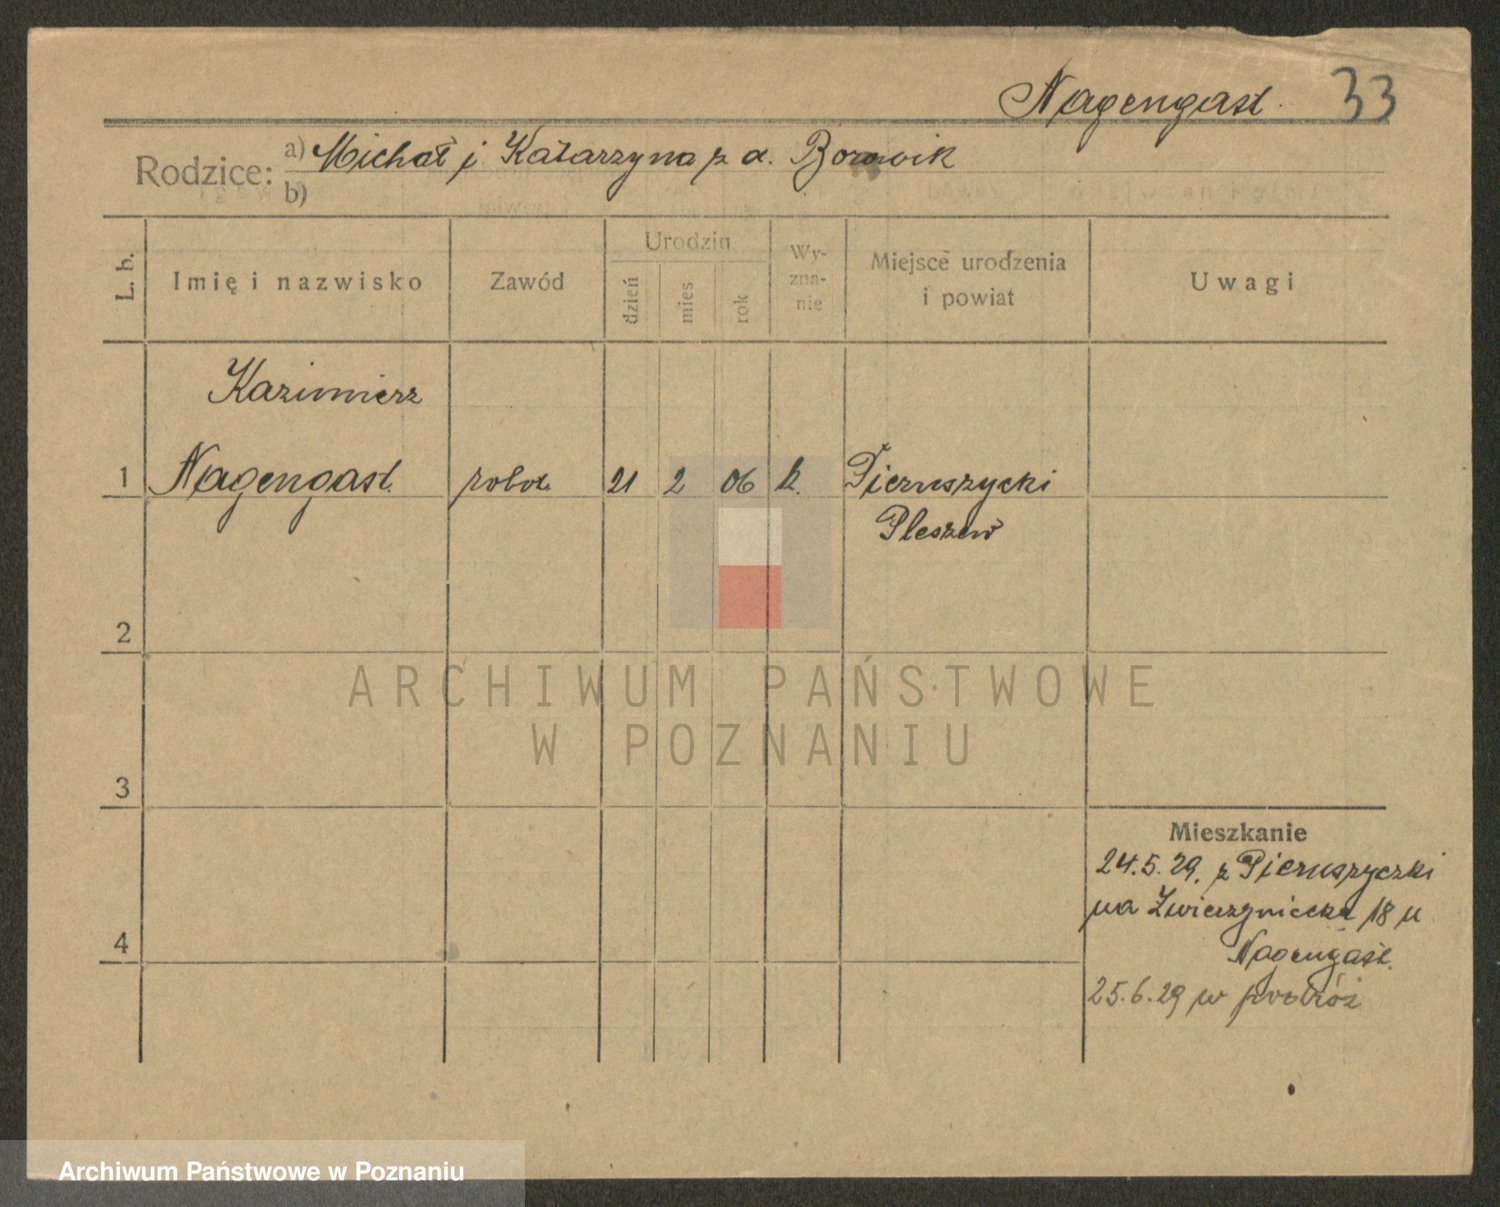 Nagengast 33
Rodzice: a) Michał i Katarzyna z d. Borowik
b)
L. b. Imię i nazwisko Zawód Urodzin dzień mies rok Wy-zna-nie Miejsce urodzenia i powiat Uwagi
Kazimierz
1 Nagengast robot. 21 2 06 k. Pieruszycki
Pleszew
2
ARCHIWUM PAŃSTWOWE
W POZNANIU
3
Mieszkanie
24.5.29. z Pieruszyczki
na Zwierzyniecka 18 u
4 Nagengast.
25.6.29 w podróż
Archiwum Państwowe w Poznaniu